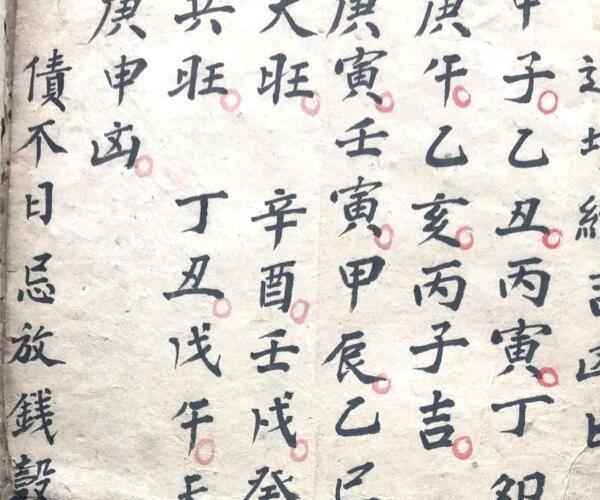 吉凶日
甲子乙丑丙寅丁卯
庚午乙亥丙子吉
庚寅壬寅甲辰乙巳
大旺 辛酉壬戌癸
旺 丁丑戊午
庚申凶
債不日忌放錢穀